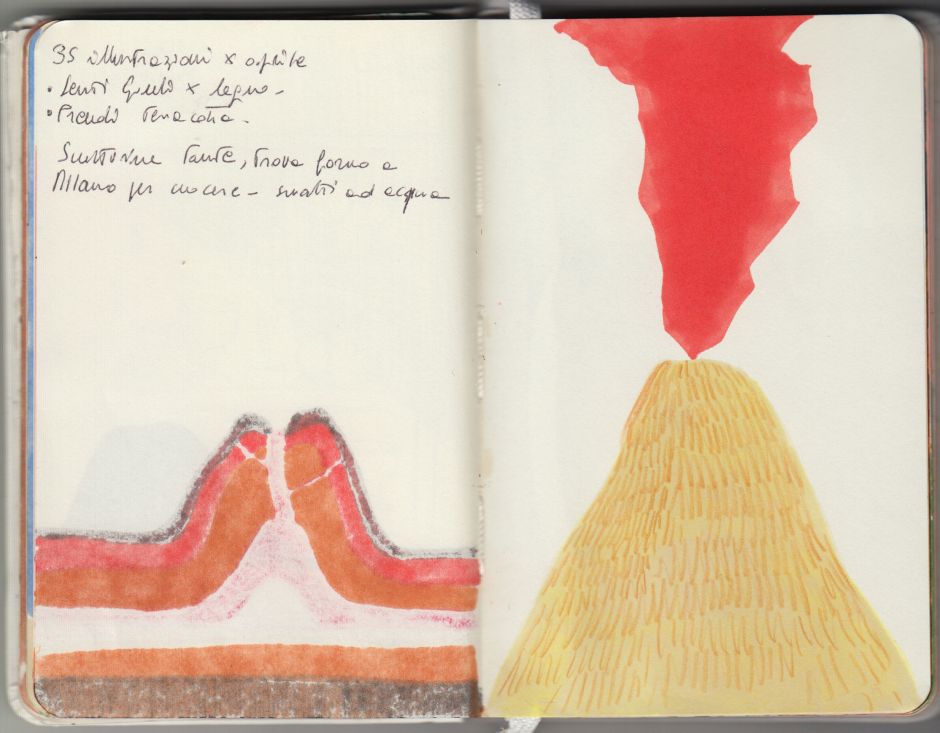 35 illustrazioni x aprile
• Senti x legno -
• Prendi Terracotta.
Tante, trova forno a
Milano per cuocere - smalti ad acqua